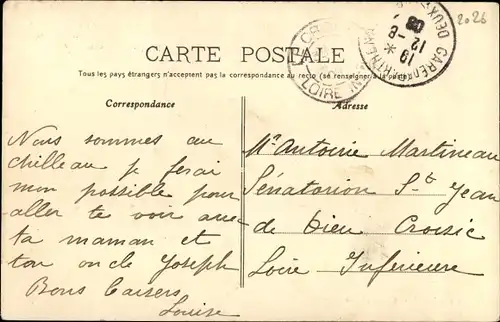 2026
CARTE POSTALE
Tous les pays étrangers n'acceptent pas la correspondance au recto (se renseigner à la poste)
Correspondance
Adresse
LE CROISIC
LOIRE
GARE
DEUX
19
12-8
08
Nous sommes au
chilleau je ferai
mon possible pour
aller te voir avec
ta maman et
ton oncle Joseph
Bons Baisers
Louise
Mr Antoine Martineau
Sénatorion St Jean
de Dieu Croisic
Loire Inférieure